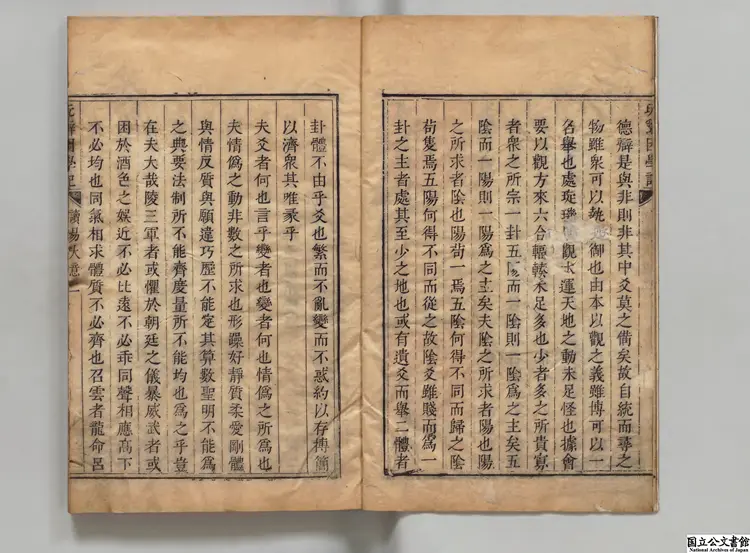 玩辭困學記
德辯是與非則非其中爻莫之備矣故自統而尋之
物雖衆可以執 御也由本以觀之義雖博可以一
名舉也處璇璣 觀大運天地之動未足怪也據會
要以觀方來六合輻輳未足多也少者多之所貴寡
者衆之所宗一卦五陽而一陰則一陰爲之主矣五
陰而一陽則一陽爲之主矣夫陰之所求者陽也陽
之所求者陰也陽苟一焉五陰何得不同而歸之陰
苟隻焉五陽何得不同而從之故陰爻雖賤而爲一
卦之主者處其至少之地也或有遺爻而舉二體者
卦體不由乎爻也繁而不亂變而不惑約以存博簡
以濟衆其唯彖乎
夫爻者何也言乎變者也變者何也情僞之所爲也
夫情僞之動非數之所求也形躁好靜質柔愛剛體
與情反質與願違巧歷不能定其算數聖明不能爲
之典要法制所不能齊度量所不能均也爲之乎豈
在夫大哉陵三軍者或懼於朝廷之儀暴威武者或
困於酒色之娛近不必比遠不必乖同聲相應高下
不必均也同氣相求體質不必齊也召雲者龍命呂
玩辭困學記
讀易大意
二
国立公文書館
National Archives of Japan